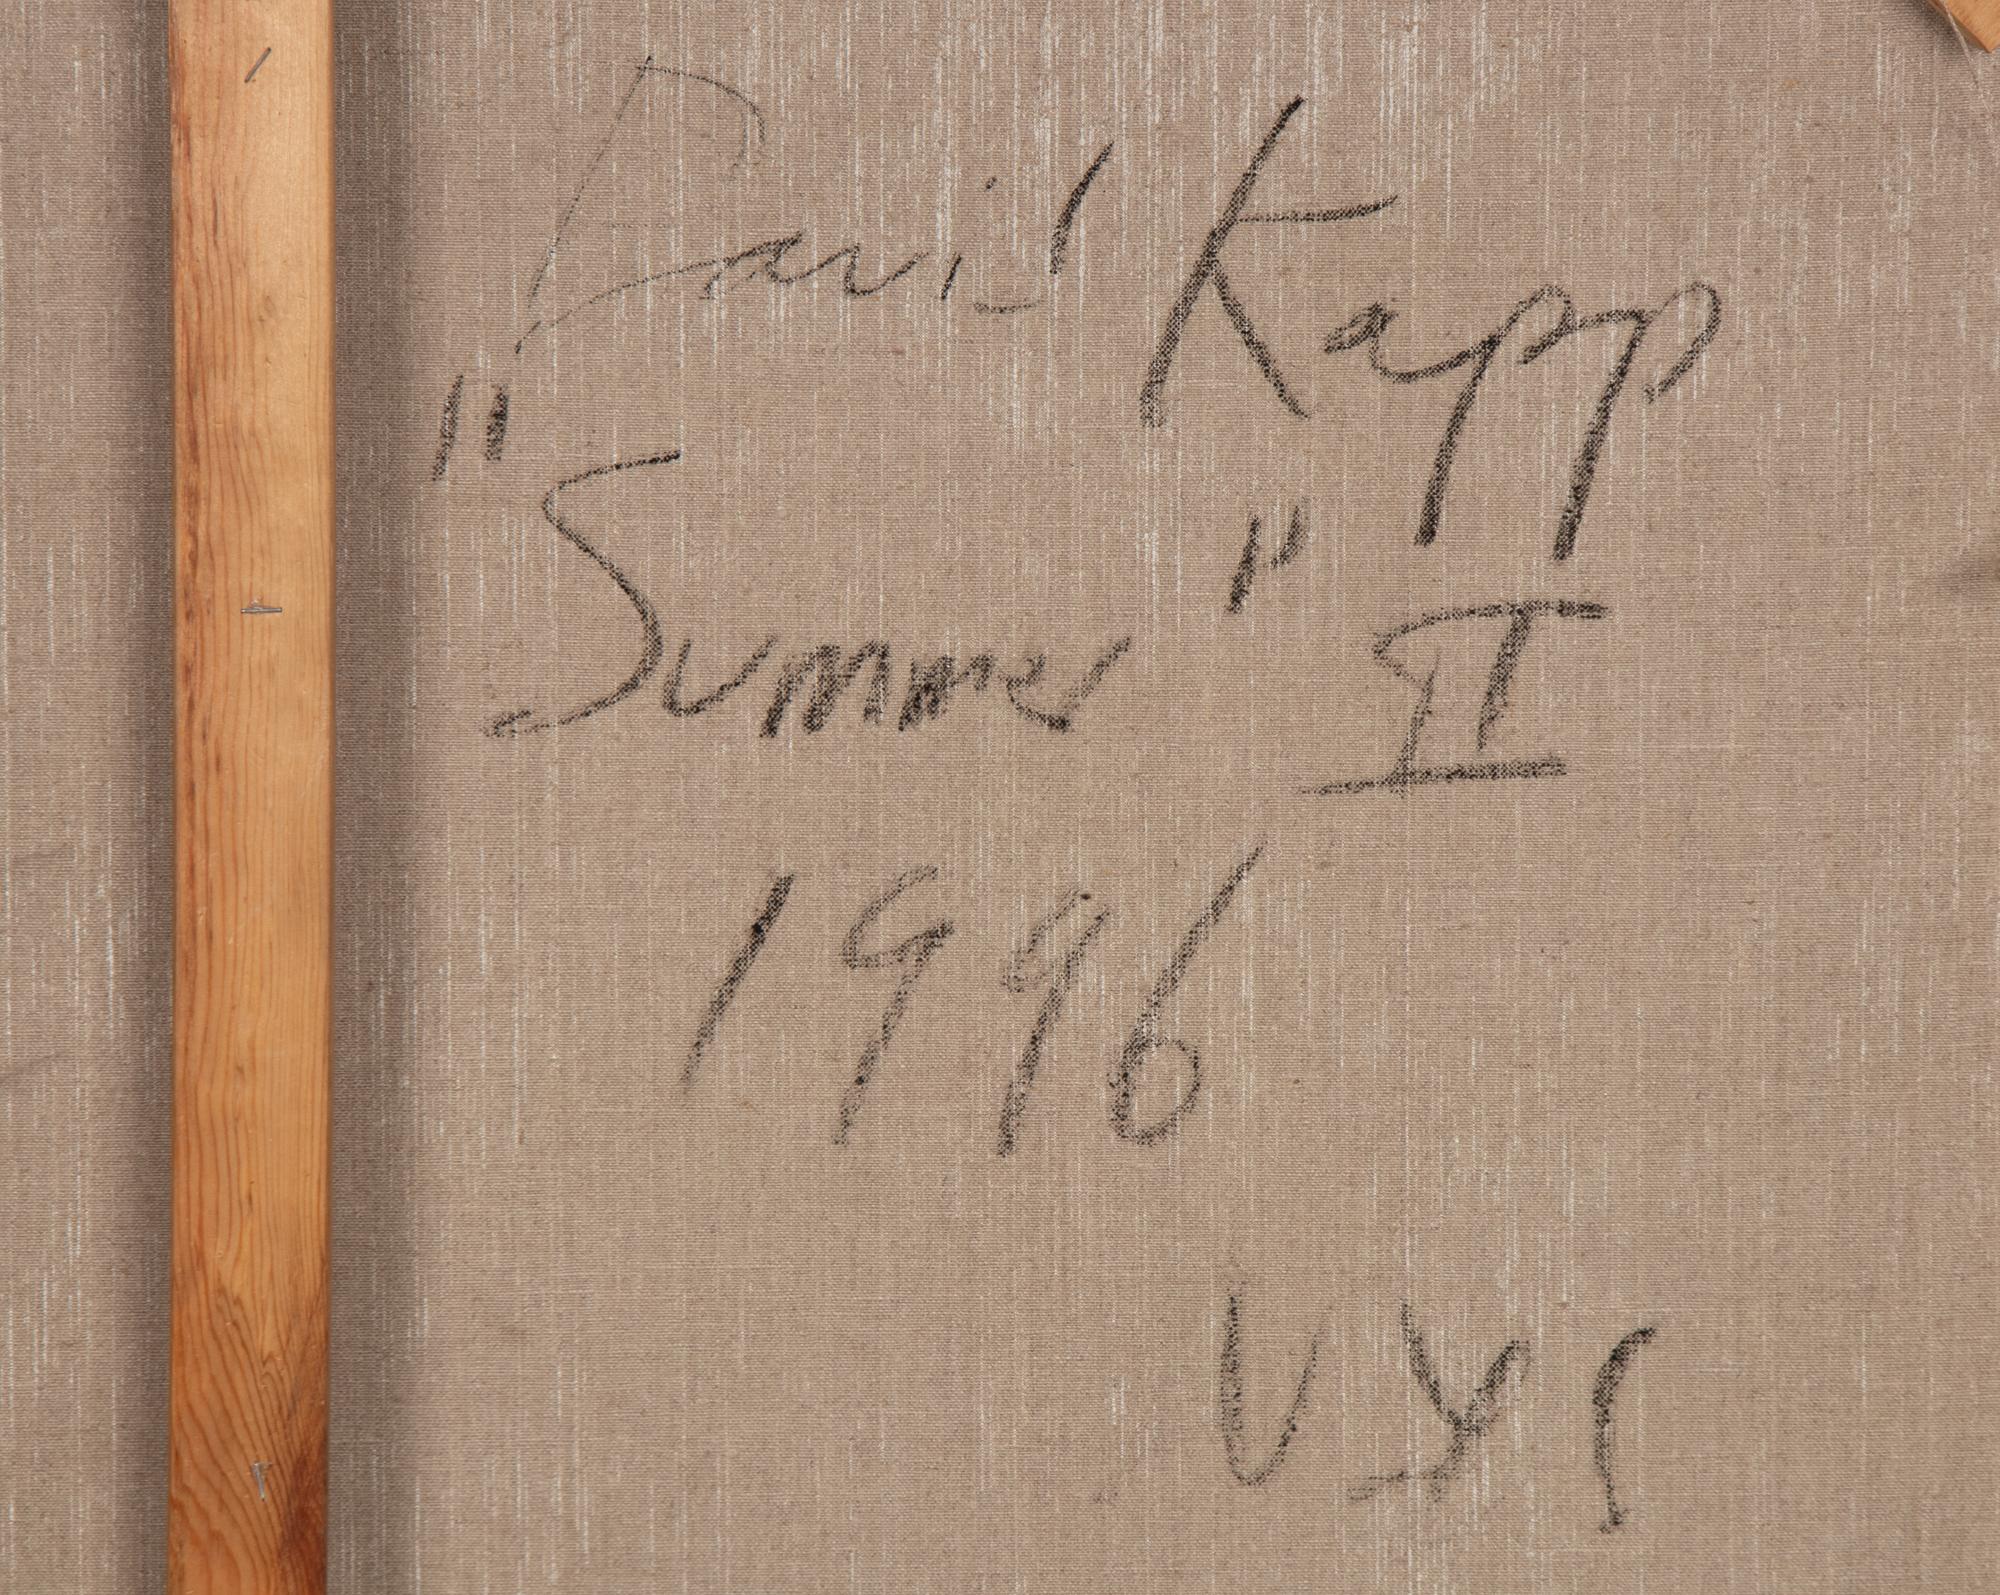 David Kapp
"Summer" II
1996